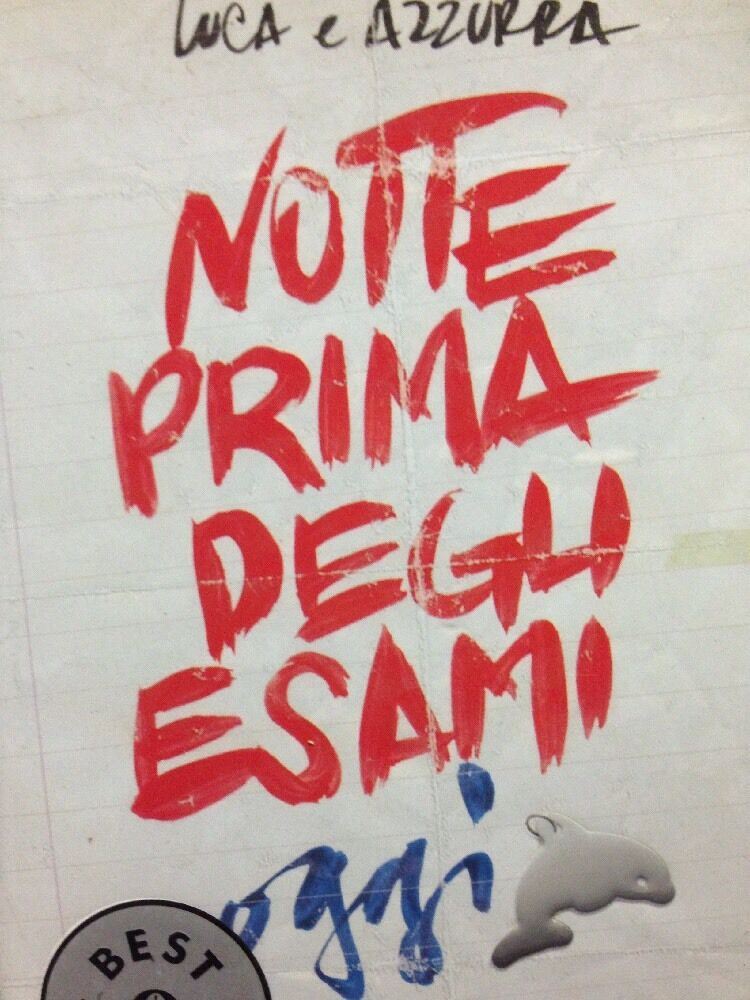 LUCA e AZZURRA
NOTTE
PRIMA
DEGLI
ESAMI
oggi
BEST